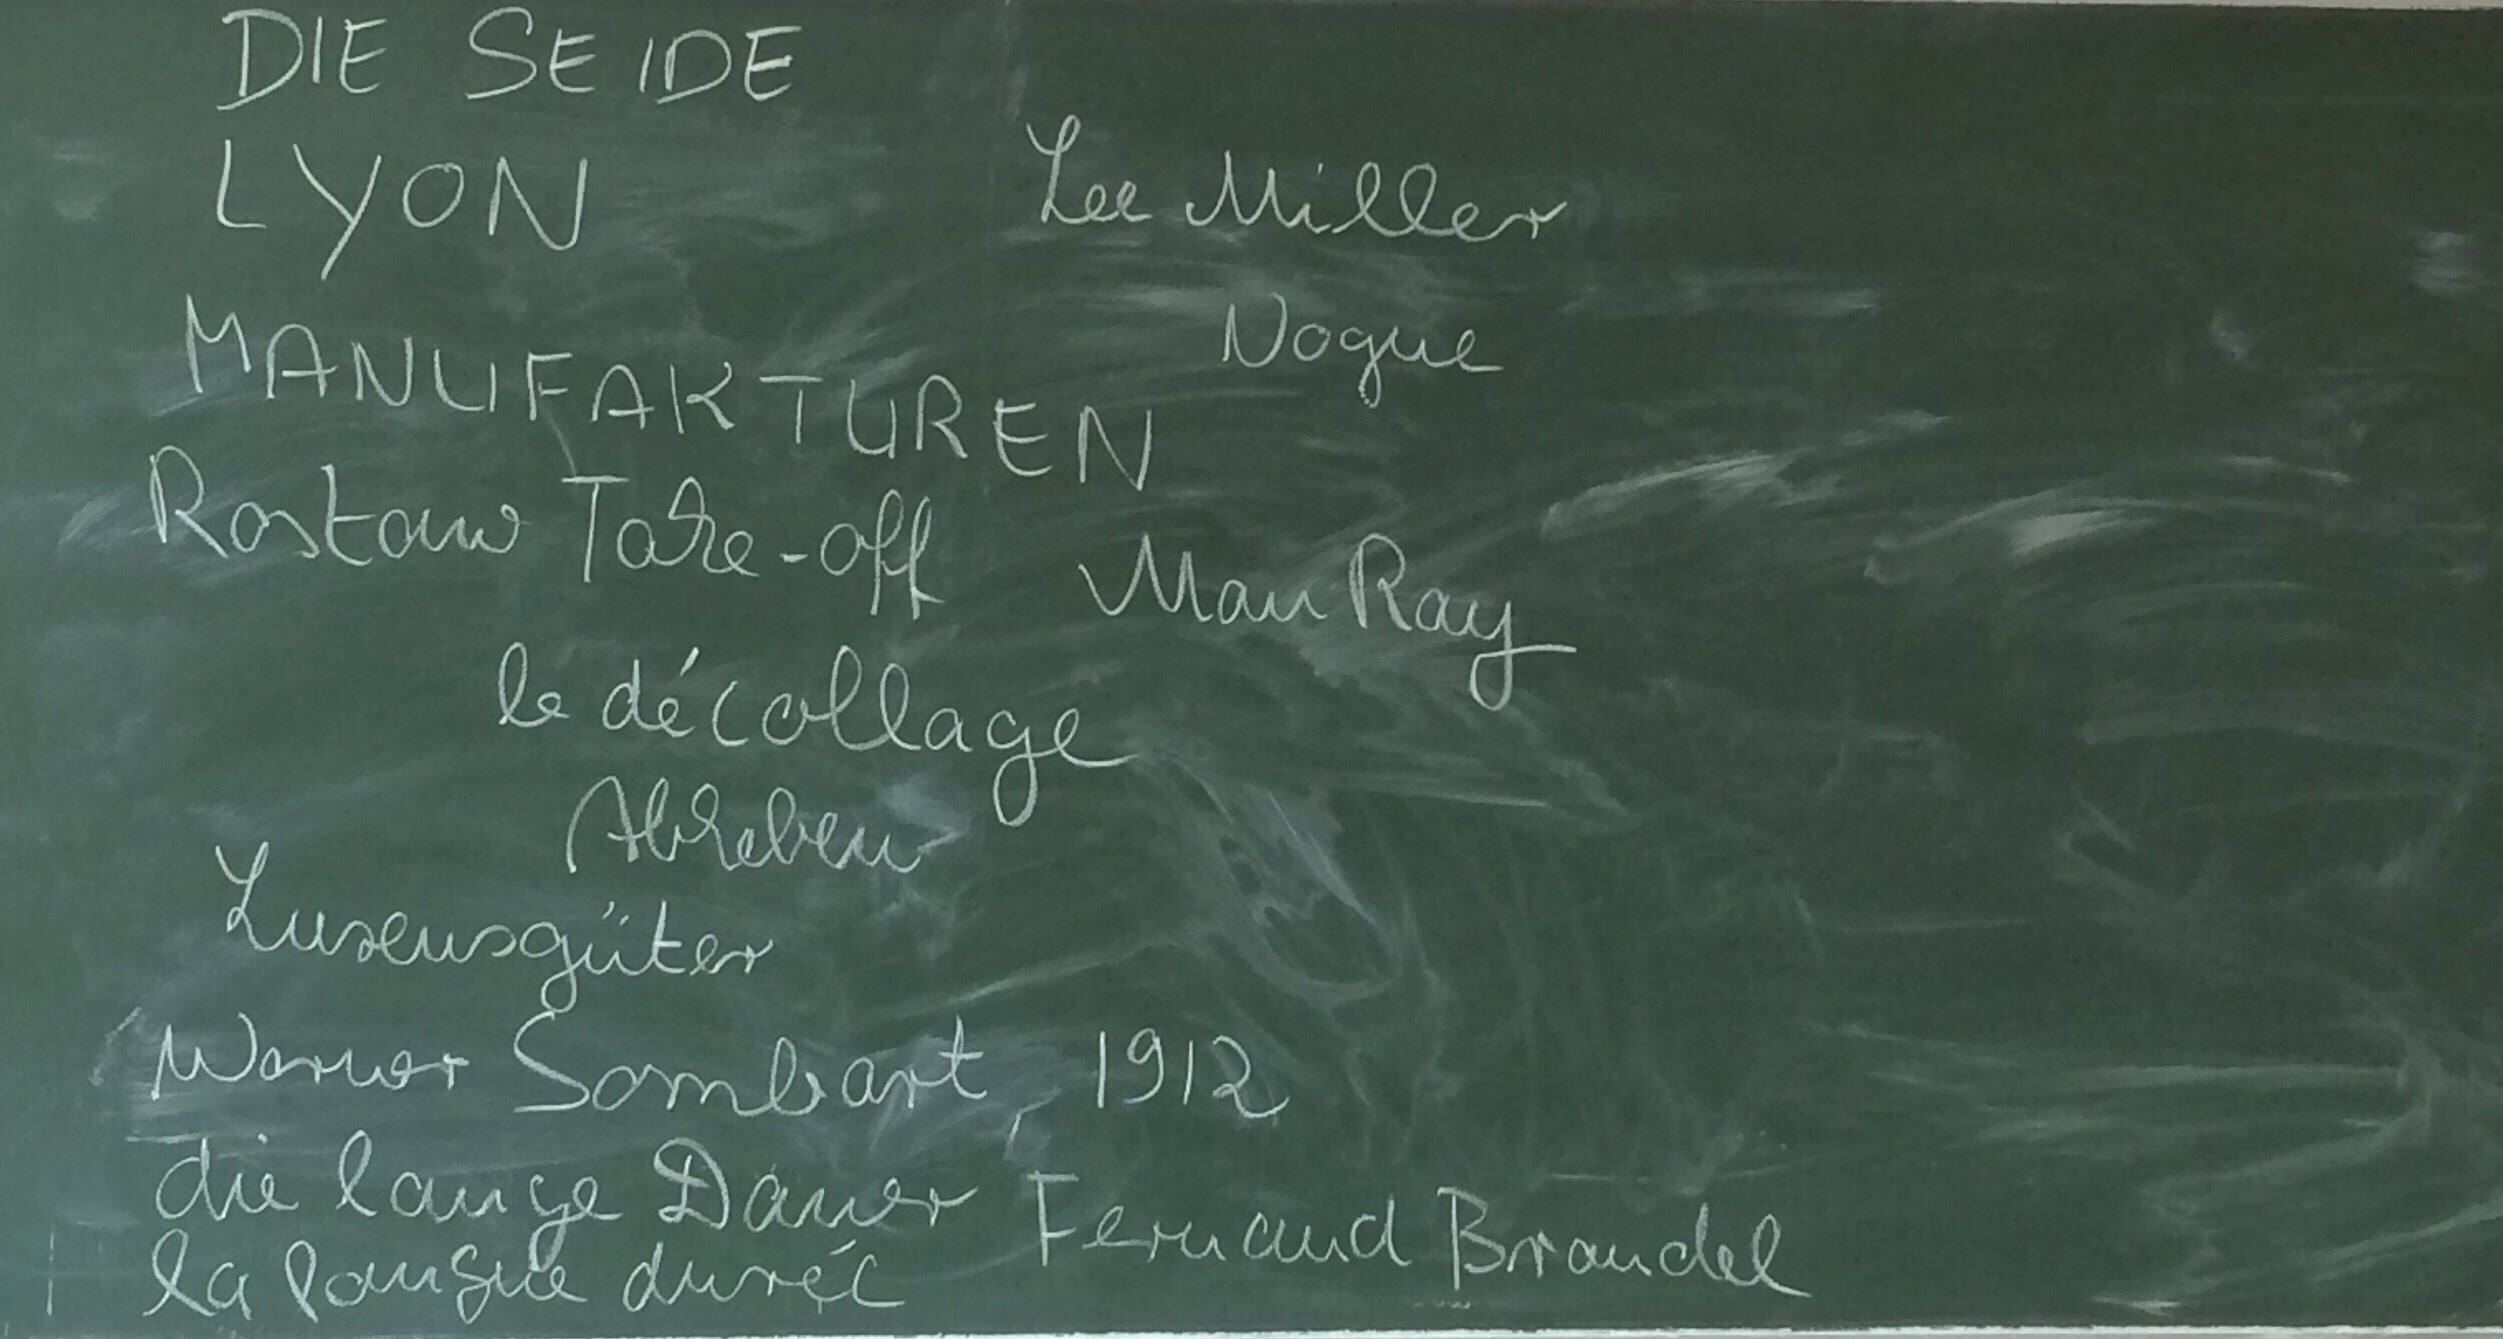 DIE SEIDE
LYON
Lee Miller
Vogue
MANUFAKTUREN
Rostow Take-off
Man Ray
le décollage
Abheben
Luxusgüter
Werner Sombart, 1912
die lange Dauer
Fernand Braudel
la longue durée